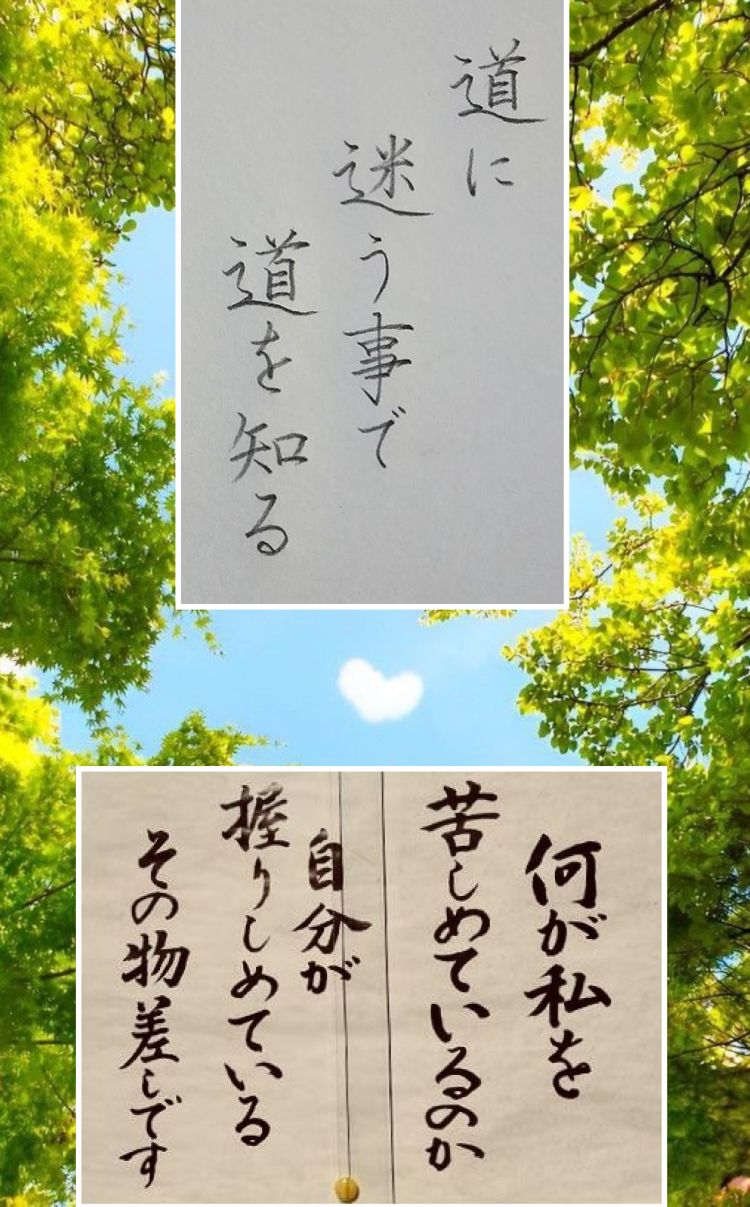 道に
迷う事で
道を知る
何が私を
苦しめているのか
自分が
握りしめている
その物差しです